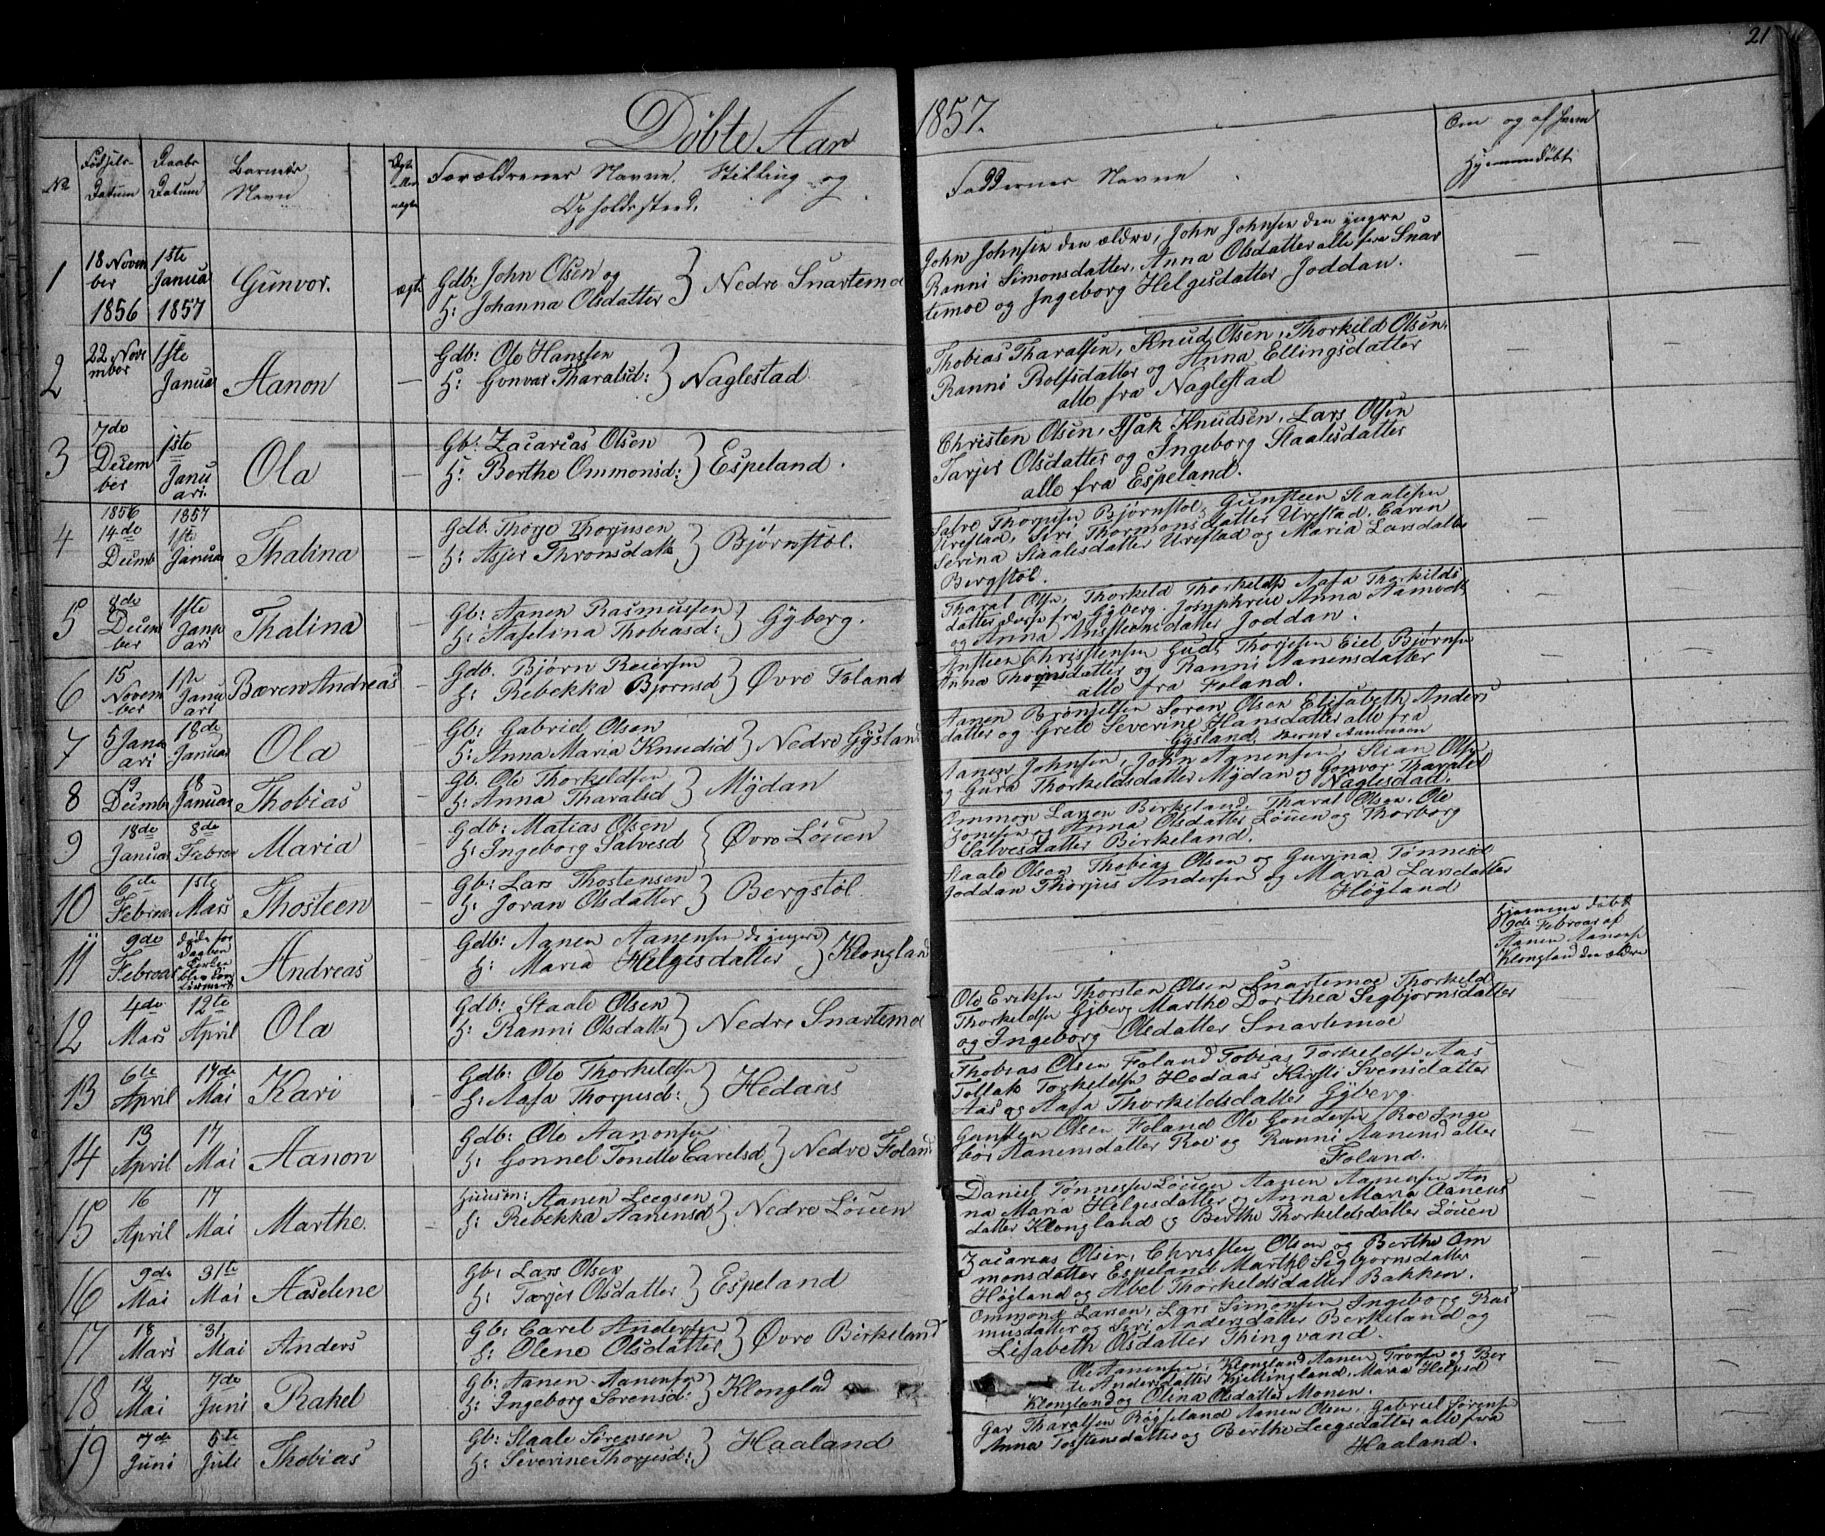 21
Döbte Aar 1857.
No
Fødsels Datum
Daabs Datum
Barnets Navn
Ægte eller uægte
Forældrenes Navne, Stilling og
Opholdssted.
Faddernes Navne
Om og af hvem
Hjemmedøbt
1
18 Novem
ber
1856
1ste
Januar
1857
Gunvor.
ægte
Gdb: John Olsen og
H: Johanna Olsdatter } Nedre Snartemoe
John Johnsen den ældre, John Johnsen den yngre
Ranni Simonsdatter, Anna Olsdatter alle fra Snar
temoe og Ingeborg Helgesdatter Joddan.
2
22 Nove
mber
1ste
Januar
Aanon
Gdb: Ole Hanssen
H: Gonvor Tharalsd: } Naglestad
Thobias Tharalsen, Knud Olsen, Thorkild Olsen,
Ranni Rolfsdatter og Anna Ellingsdatter
alle fra Naglestad
3
7de
Decem
ber
1ste
Janu
ari.
Ola
Gb: Zacarias Olsen
H: Berthe Ommonsd: } Espeland.
Christen Olsen, Isak Knudsen, Lars Olsen
Tarjer Olsdatter og Ingeborg Staalesdatter
alle fra Espeland.
4
1856
14de
Decemb
1857
1ste
Januar
Thalina
Gdb. Thorje Thorjusen
H: Asjer Thronsdatt } Bjørnstöl.
Salve Thorjusen Bjørnstöl, Gunsteen Staalesen
Urestad, Siri Thormonsdatter Urestad, Caren
Serina Staalesdatter Urestad og Maria Larsdatter
Bergstöl.
5
8de
Decem
ber
1ste
Janu
ari
Thalina
Gb: Aanen Rasmussen
H: Aaselina Thobiasd: } Gyberg.
Tharal Olsen, Thorkeld Thorkelds Aasa Thorkilds
datter disse fra Gyberg. Jomphrue Anna Aamodt
og Anna Ansteensdatter Joddan.
6
15
Novem
ber
1ste
Janu
ari
Bæren Andreas
Gdb. Bjørn Reiersen
H: Rebekka Bjornsd } Øvre Foland
Ansteen Christensen Gudt Thorjesen Eiel Bjørnsen
Anna Thormsdatter og Ranni Aanensdatter
alle fra Foland.
7
5 Janu
ari
18de
Januar
Ola
Gb: Gabriel Olsen
H: Anna Maria Knudsd } Nedre Gysland
Aanen Brønjelsen Soren Olsen Elisabeth Anders
datter og Grete Severine Hansdatter alle fra
Gysland,
8
19
Decemb
18
Januar
Thobias
Gb. Ole Thorkeldsen
H: Anna Tharalsd } Mydan
Aanen Johnsen, John Aanensen, Stian Olsen
og Gura Thorkeldsdatter Mydan og Gonvor Tharalsd
Naglestad.
9
18de
Januar
8de
Februar
Maria
Gdb: Matias Olsen
H: Ingeborg Salvesd { Øvre Löuen
Ommon Larsen Birkeland, Tharal Olsen, Ole
Jonsen og Anna Olsdatter Löuen og Thorborg
Salvesdatter Birkeland.
10
6de
Februar
1ste
Mars
Thosteen
Gb: Lars Thostensen
H: Joran Olsdatter } Bergstöl
Staale Olsen Thobias Olsen og Gurina Tønnesd
Joddan Thorjus Andersen og Maria Larsdatter
Högland
11
9de
Februar
døde før
Andreas
Gdb: Aanen Aanensen d: yngere
H: Maria Helgesdatter } Klongland
Hjemme döbt
9de Februar af
Aanen Aanens
Klongland den ældre
12
4de
Mars
12te
April
Ola
Gdb: Staale Olsen
H: Ranni Olsdatter } Nedre Snartemoe
Ole Eriksen Thorsten Olsen Snartemoe Thorkeld
Thorkeldsen Gyberg Marthe Dorthea Segbjornsdatter
og Ingeborg Olsdatter Snartemoe
13
6te
April
17de
Mai
Kari
Gdb: Ole Thorkeldsen
H: Aasa Thorjusd: } Hedaas
Thobias Olsen Foland Tobias Torkeldsen Aas
Tollak Torkeldsen Hedaas Kirsti Svensdatter
Aas og Aasa Thorkeldsdatter Gyberg
14
13
April
17
Mai
Aanon
Gdb: Ole Aanonsen
H: Gonnel Tonette Carelsd } Nedre Foland
Gunsten Olsen Foland Ole Gondersen Roe Inge
bor Aanensdatter Roe og Ranni Aanensdatter
Foland.
15
16
April
17
Mai
Marthe
Huusm: Aanen Leegsen
H: Rebekka Aanensd } Nedre Löuen
Daniel Tønnesen Löuen Aanen Aanensen An
na Maria Helgesdatter og Anna Maria Aanens
datter Klongland og Berthe Thorkeldsdatter Löuen
16
9de
Mai
31te
Mai
Aaselene
Gb: Lars Olsen
H: Tarjer Olsdatter } Espeland
Zacarias Olsen, Christen Olsen og Berthe Om
monsdatter Espeland Marthe Segbjornsdatter
Högland og Abel Thorkeldsdatter Bakken.
17
18
Mars
31
Mai
Anders
Gb: Carel Andersen
H: Olene Olsdatter } Øvre Birkeland
Ommond Larsen, Lars Simonsen Ingeborg Ras
musdatter og Siri Andersdatter Berkeland og
Lisabeth Olsdatter Thingvand.
18
12
Mai
7de
Juni
Rahel
Gb: Aanen Aanensen
H: Ingeborg Sorensd: } Klonglad
Ole Aanensen, Klongland Aanen Tronsen og Ber
te Andersdatter Kjellingland, Maria Helgesd
Klongland og Olina Olsdatter Monen.
19
7de
Juni
5te
Juli
Thobias
Gb: Staale Sorensen
H: Severine Thorjesd: } Haaland
Gar Tharalsen Rögseland Aanen Olsen, Gabriel Sörensen
Anna Tostensdatter og Berthe Leegsdatter alle fra
Haaland.